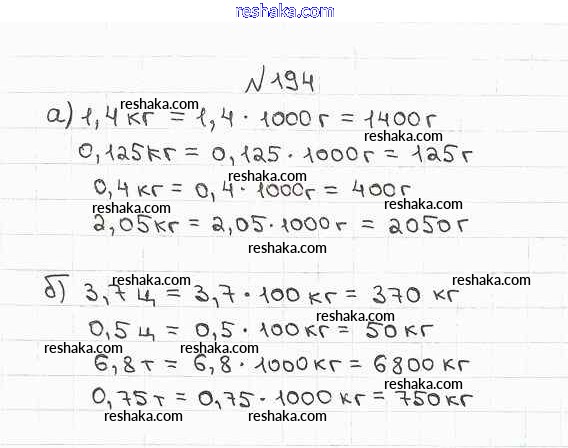 reshaka.com
N 194
reshaka.com
а) 1,4 кг = 1,4 · 1000 г = 1400 г
reshaka.com
0,125 кг = 0,125 · 1000 г = 125 г
reshaka.com
0,4 кг = 0,4 · 1000 г = 400 г
reshaka.com reshaka.com
2,05 кг = 2,05 · 1000 г = 2050 г
reshaka.com
reshaka.com reshaka.com
б) 3,7 ц = 3,7 · 100 кг = 370 кг
reshaka.com
0,5 ц = 0,5 · 100 кг = 50 кг
reshaka.com reshaka.com
6,8 т = 6,8 · 1000 кг = 6800 кг
reshaka.com
0,75 т = 0,75 · 1000 кг = 750 кг
reshaka.com reshaka.com